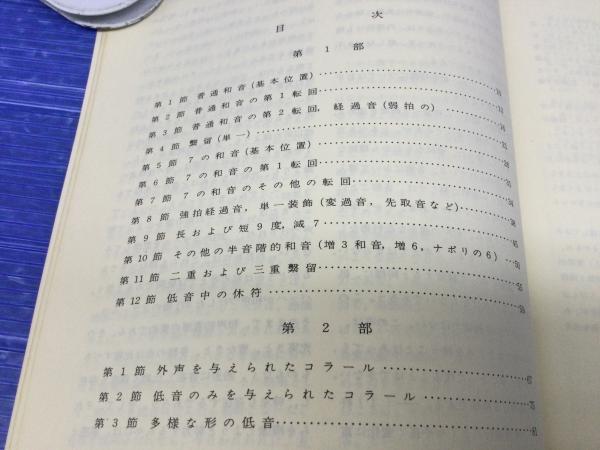 目次
第1部
第1節 普通和音(基本位置)
第2節 普通和音の第1転回
第3節 普通和音の第2転回, 経過音(弱拍の)
第4節 繋留(単一)
第5節 7の和音(基本位置)
第6節 7の和音の第1転回
第7節 7の和音のその他の転回
第8節 強拍経過音, 単一装飾(変過音, 先取音など)
第9節 長および短9度, 減7
第10節 その他の半音階的和音(増3和音, 増6, ナポリの6)
第11節 二重および三重繋留
第12節 低音中の休符
第2部
第1節 外声を与えられたコラール
第2節 低音のみを与えられたコラール
第3節 多様な形の低音